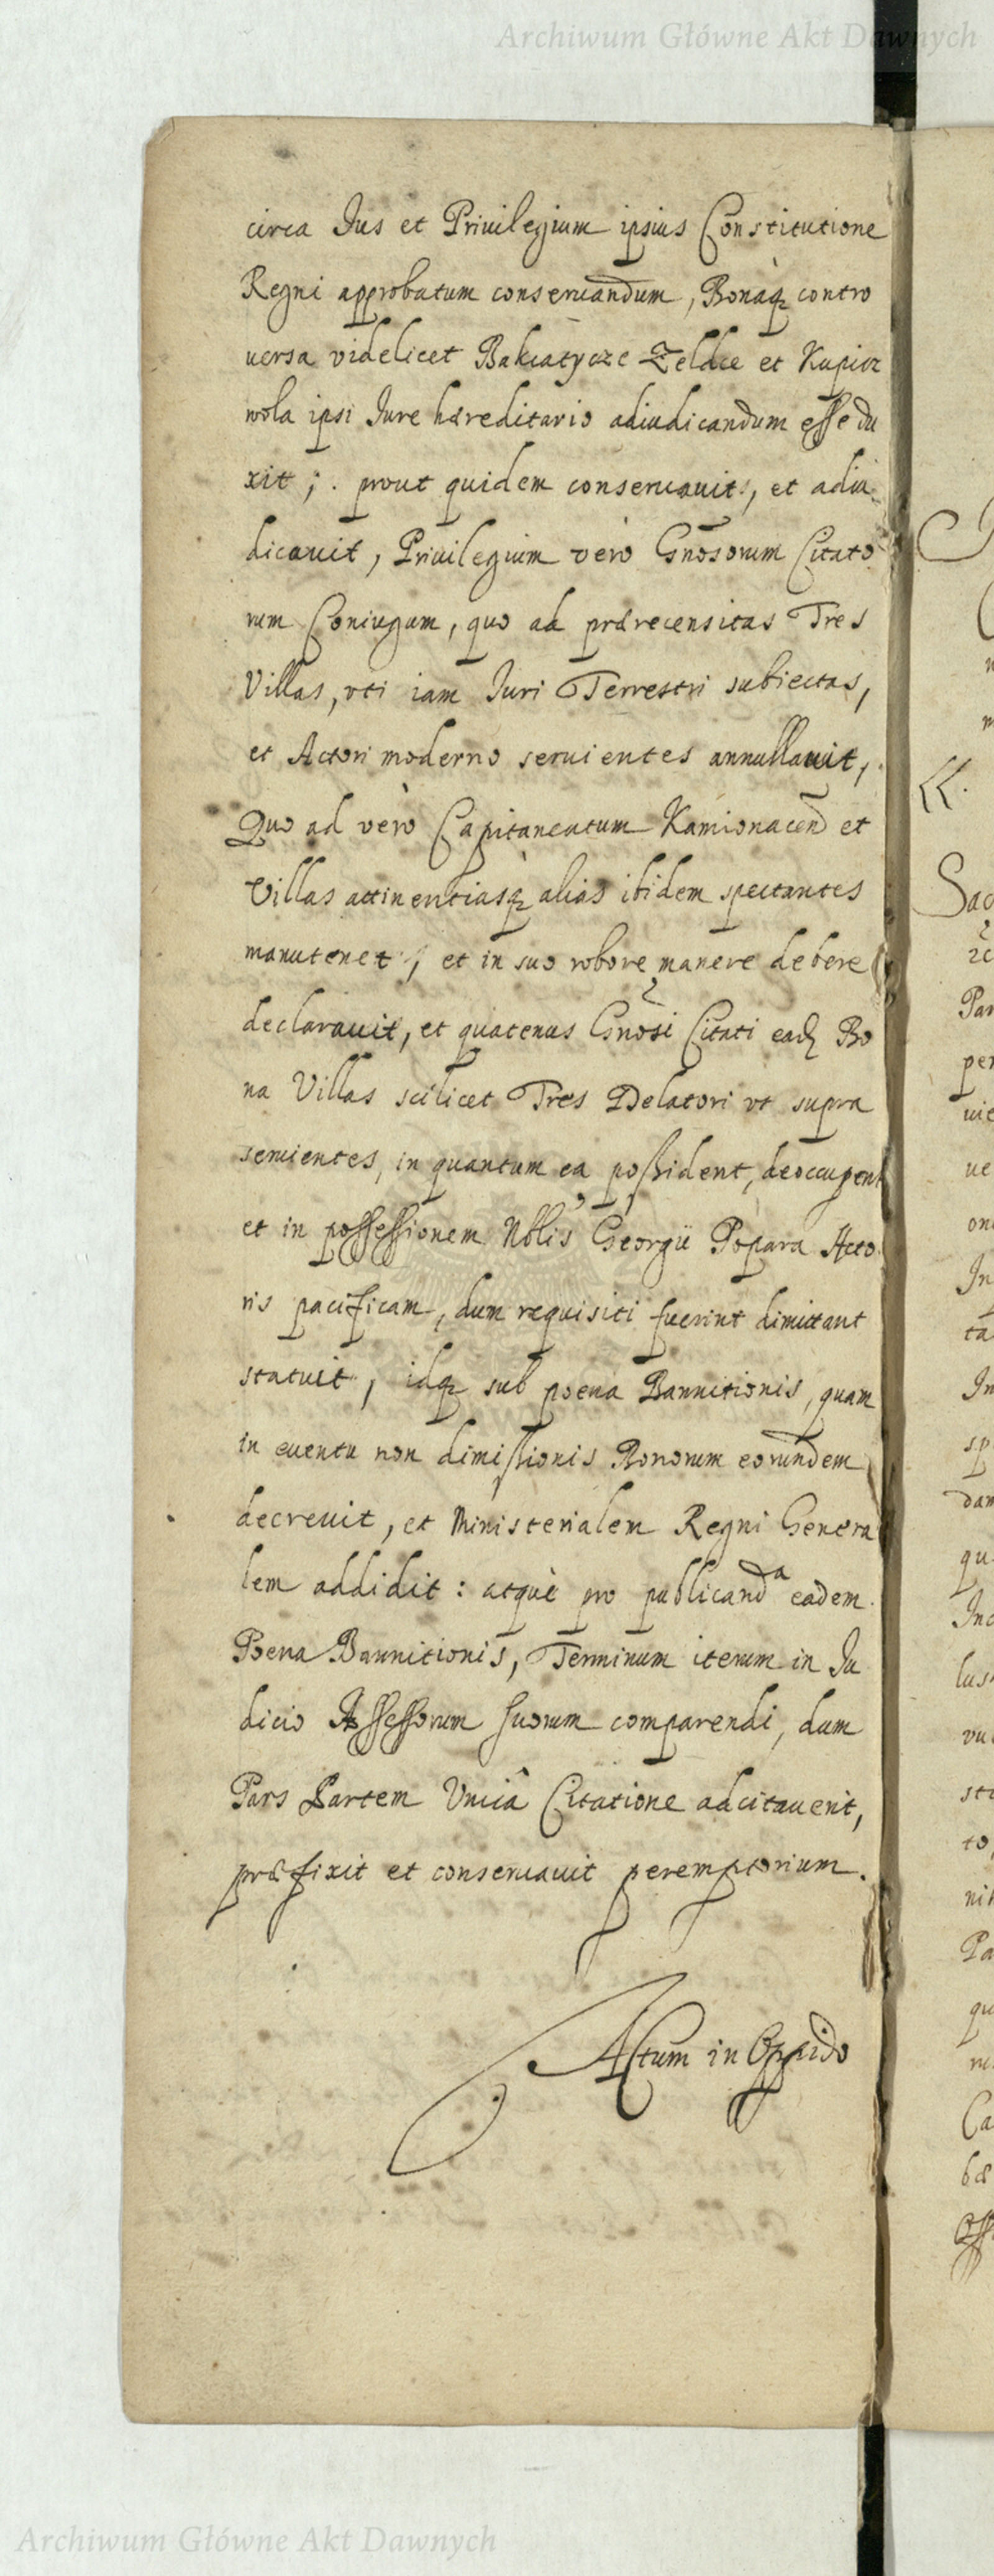 Archiwum Główne Akt Dawnych
circa Ius et Priuilegium ipsius Constitutione
Regni approbatum conseruandum, Bonaq; contro
uersa videlicet Bakiatycze Zeldce et Kupicz
wola ipsi Iure hæreditario adiudicandum esse du
xit; prout quidem conseruauit, et adiu
dicauit, Priuilegium verò Gnosorum Citato
rum Coniugum, quo ad præcensitas Tres
Villas, vti iam Iuri Terrestri subiectas,
et Actori moderno seruientes annullauit,
Quo ad verò Capitaneatum Kamionacen et
Villas attinentiasq; alias ibidem spectantes
manutenet, et in suo robore manere debere
declarauit, et quatenus Gnosi Citati ead Bo
na Villas scilicet Tres Delatori vt supra
seruientes, in quantum ea possident, deoccupent
et in possessionem Nblis Georgii Popara Acto
ris pacificam, dum requisiti fuerint dimittant
statuit, idq; sub poena Bannitionis, quam
in euentu non dimissionis Bonorum eorundem
decreuit, et Ministerialem Regni Genera
lem addidit: atque pro publicanda eadem
Poena Bannitionis, Terminum iterum in Iu
dicio Assessorum suorum comparendi, dum
Pars Partem Vnicâ Citatione adcitauerit,
præfixit et conseruauit peremptorium.
Actum in Oppido
Archiwum Główne Akt Dawnych